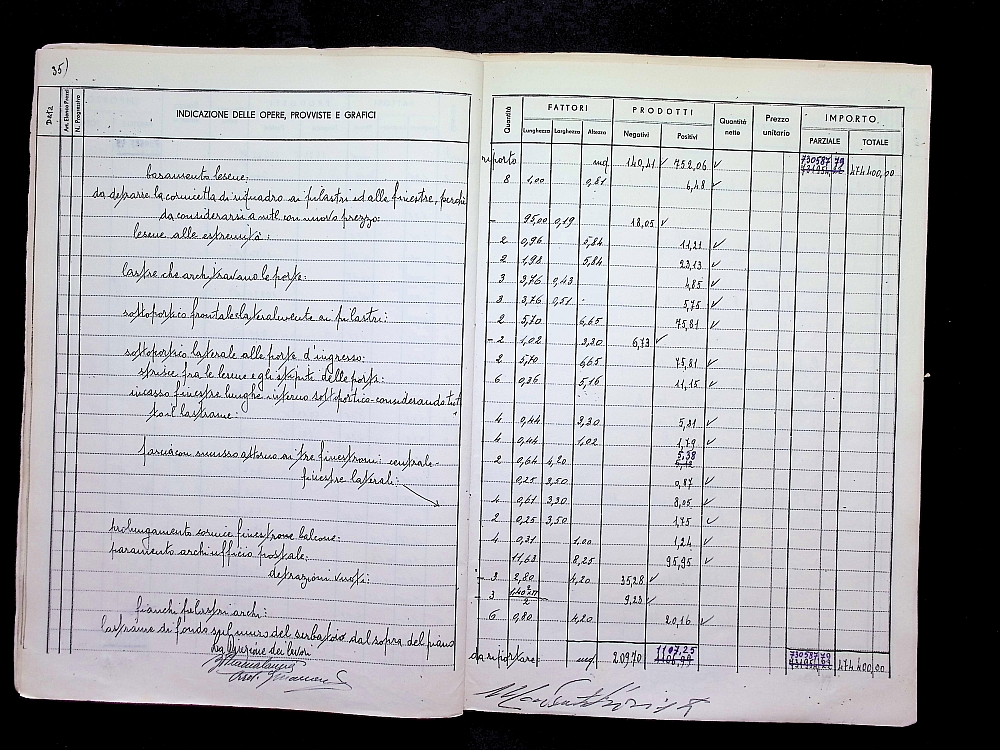 35)
DATA
Art. Elenco Prezzi
N. Progressivo
INDICAZIONE DELLE OPERE, PROVVISTE E GRAFICI
basamento lesene:
da detrarre la cornicetta di riquadro ai pilastri ed alle finestre, perchè
da considerarsi a mtl. con nuovo prezzo:
lesene alle estremità:
lastre che architravano le porte:
sottoportico frontale e lateralmente ai pilastri:
sottoportico laterale alle porte d'ingresso:
strisce fra le lesene e gli stipiti delle porte:
incasso finestre lunghe interno sottoportico considerando tut
to il lastrame:
fascia con smusso attorno ai tre finestroni: centrale-
finestre laterali:
prolungamento cornice finestrone balcone:
paramento archi ufficio postale:
detrazioni vuoti:
fianchi pilastri archi:
lastrame di fondo sul muro del serbatoio dal sopra del piano
La Direzione dei lavori
Quantità
FATTORI
Lunghezza Larghezza Altezza
PRODOTTI
Negativi Positivi
Quantità nette
Prezzo unitario
IMPORTO
PARZIALE TOTALE
riporto mq 140,41 752,06 730587,79 474400,00
8 1,00 0,81 6,48
- 95,00 0,19 18,05
2 0,96 5,84 11,21
2 1,98 5,84 23,13
3 3,76 0,43 4,85
3 3,76 0,51 5,75
2 5,70 6,65 75,81
- 2 1,02 3,30 6,73
2 5,70 6,65 75,81
6 0,36 5,16 11,15
4 0,44 3,30 5,81
4 0,44 1,02 1,79
2 0,64 4,20 5,38
0,25 3,50 0,87
4 0,61 3,30 8,05
2 0,25 3,50 1,75
4 0,31 1,00 1,24
11,63 8,25 95,95
- 3 2,80 4,20 35,28
- 3 9,23
6 0,80 4,20 20,16
da riportare: mq 209,70 1107,25 730587,79 474400,00